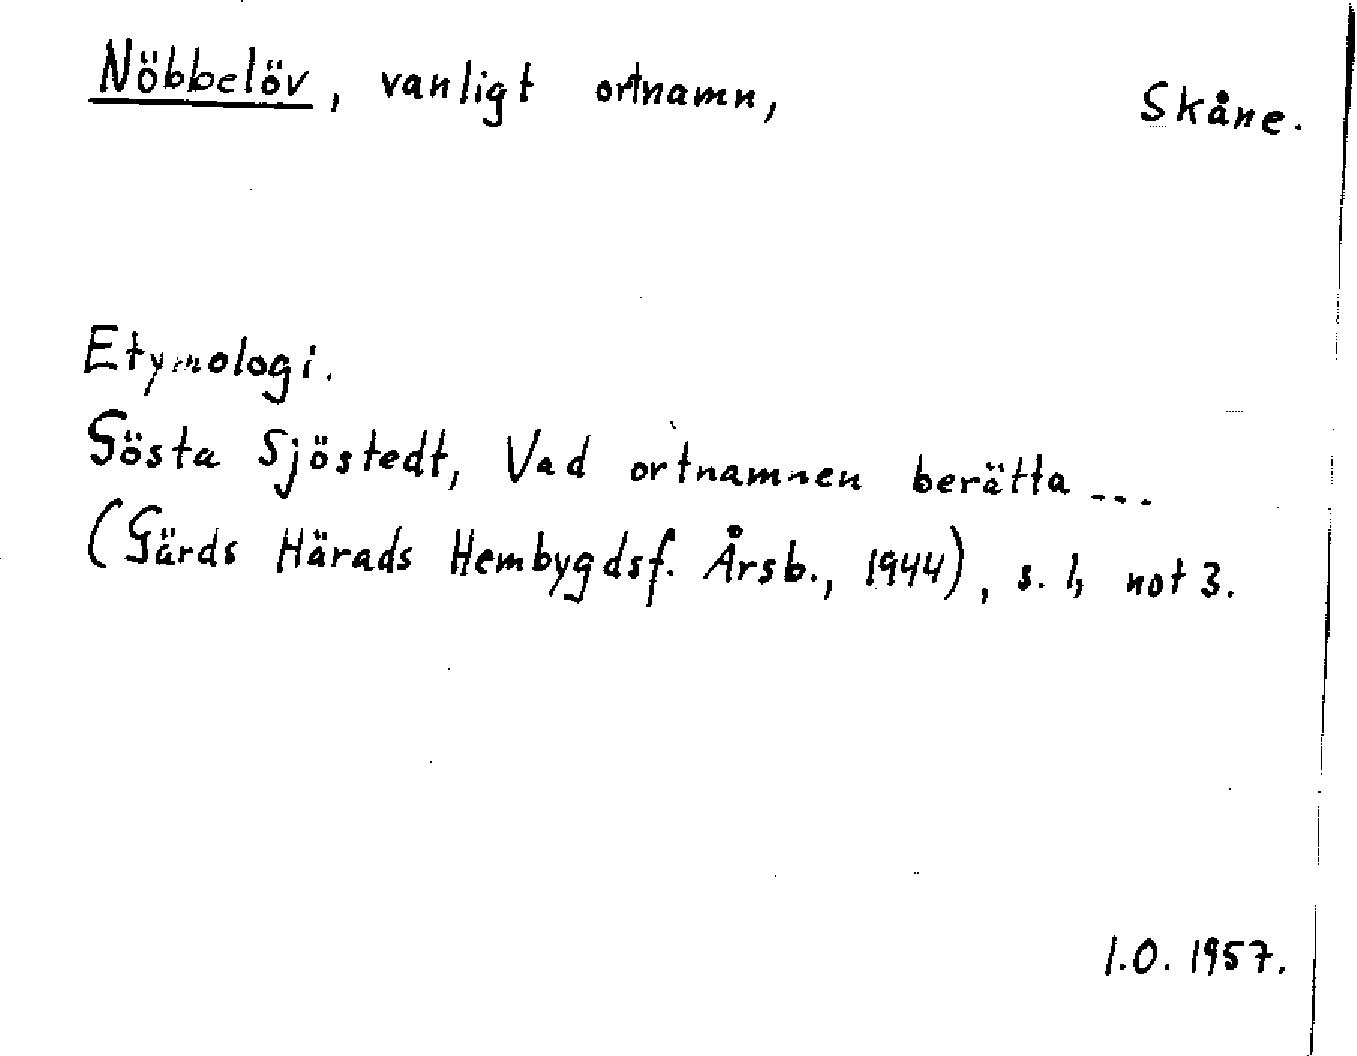 Nöbbelöv, vanligt ortnamn, Skåne.
Etymologi.
Gösta Sjöstedt, Vad ortnamnen berätta ...
(Gärds Härads Hembygdsf. Årsb., 1944), s. 1, not 3.
I.O. 1957.